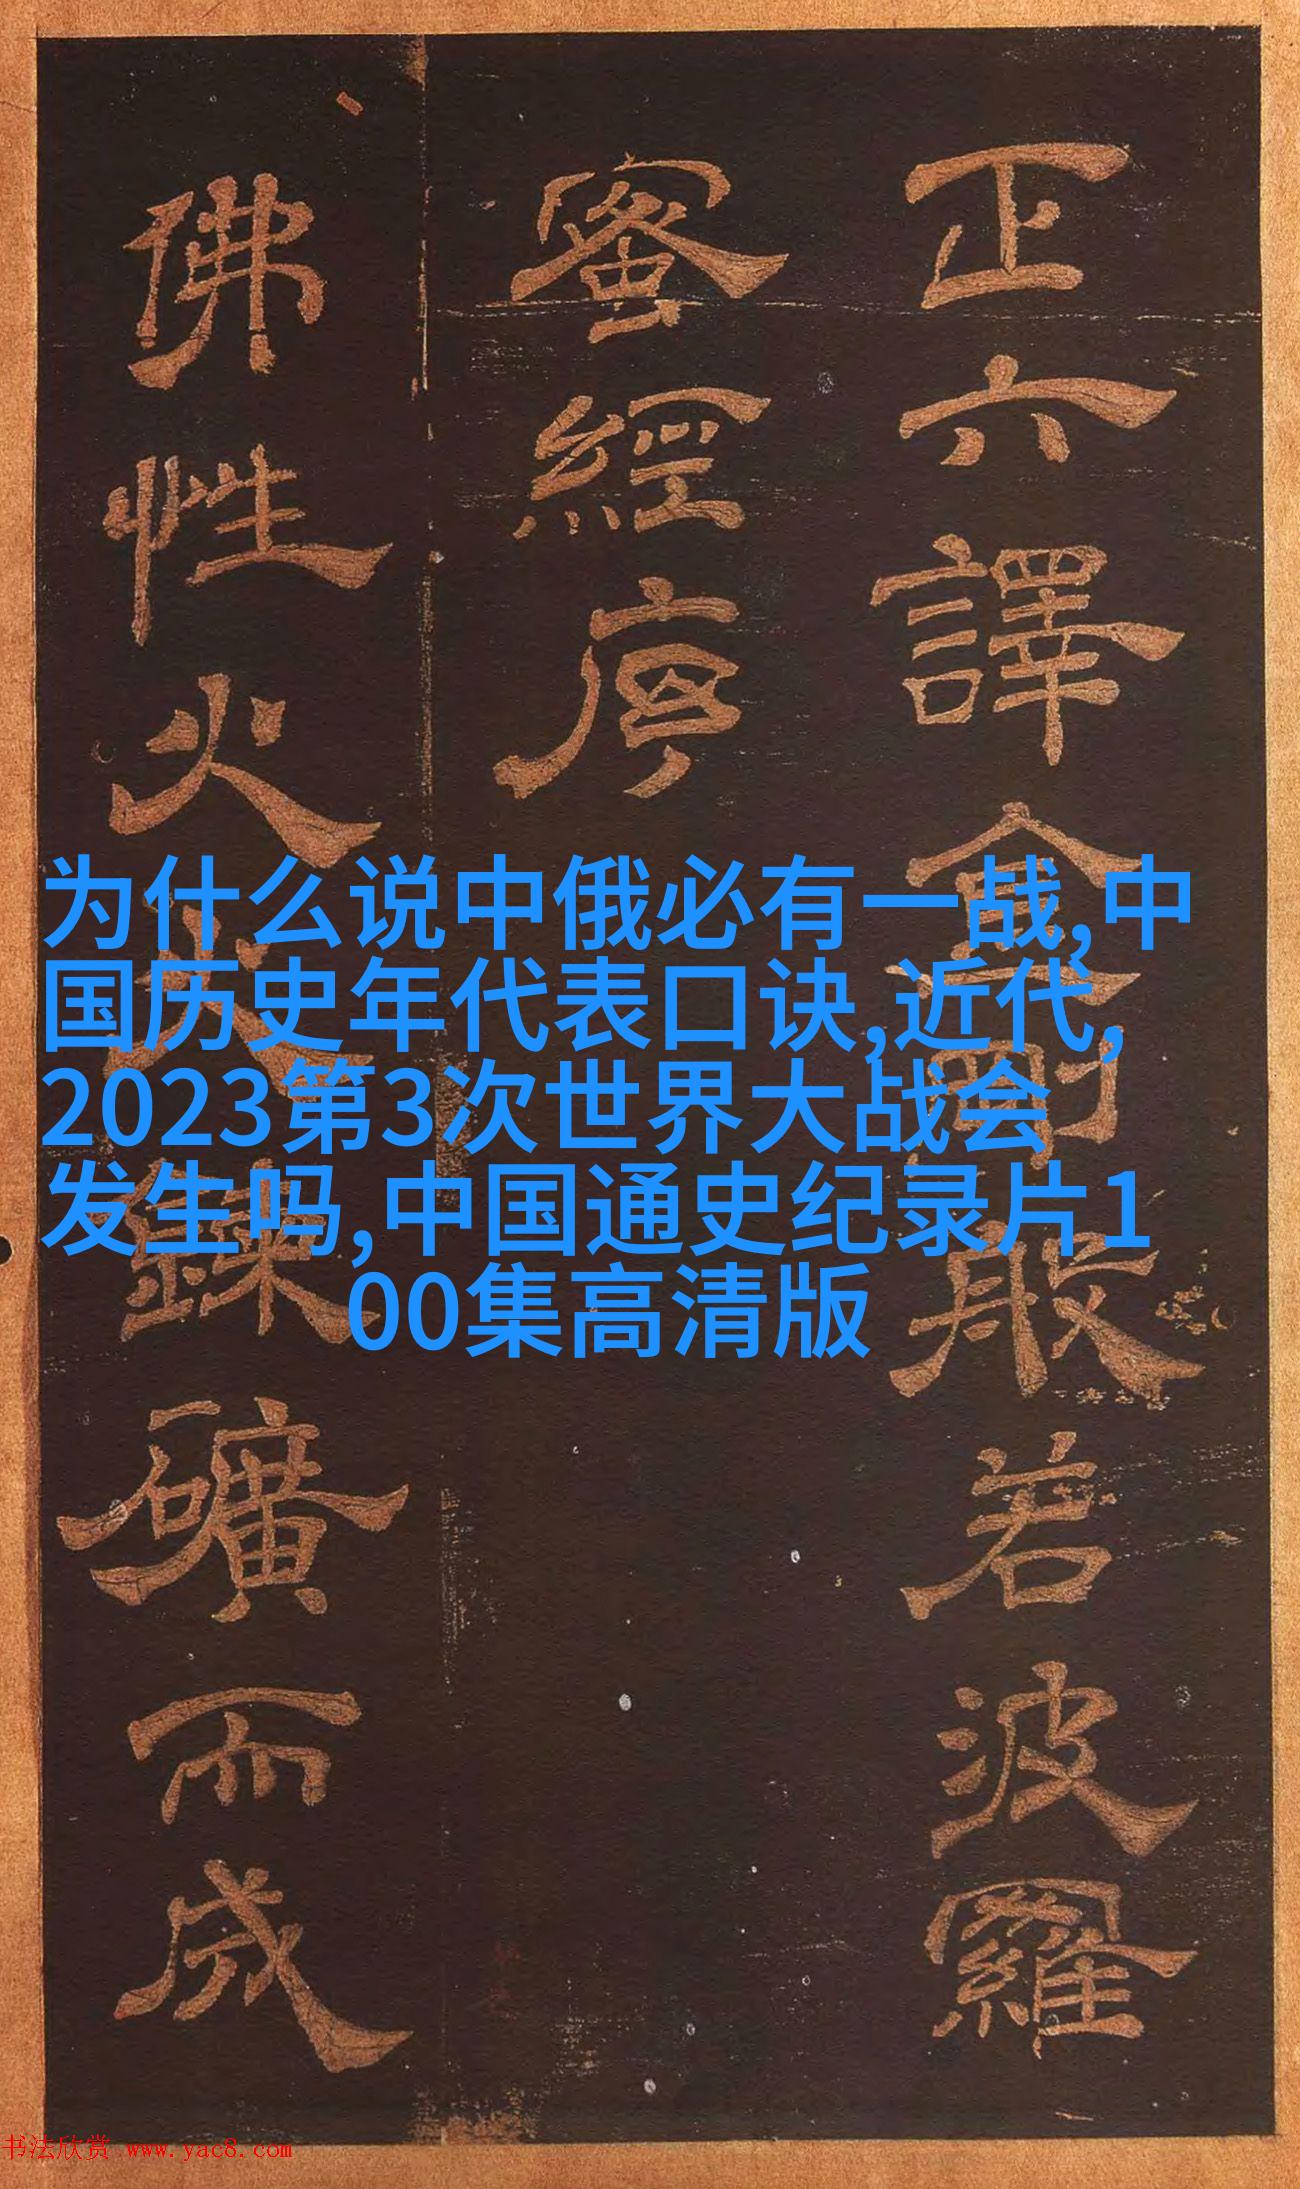 正六譯金剛般若波羅
蜜經序
佛性火鍊礦而成
为什么说中俄必有一战,中
国历史年代表口诀,近代,
2023第3次世界大战会
发生吗,中国通史纪录片1
00集高清版
书法欣赏 www.yac8.com